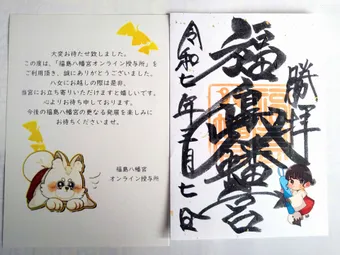 大変お待たせ致しました。
この度は、「福島八幡宮オンライン授与所」を
ご利用頂き、誠にありがとうございました。
八女にお越しの際は是非、
当宮にお立ち寄りいただけますと嬉しいです。
心よりお待ち申しております。
今後の福島八幡宮の更なる発展を楽しみに
お待ちくださいませ。
福島八幡宮
オンライン授与所
勝拝
福島八幡宮
令和七年二月七日